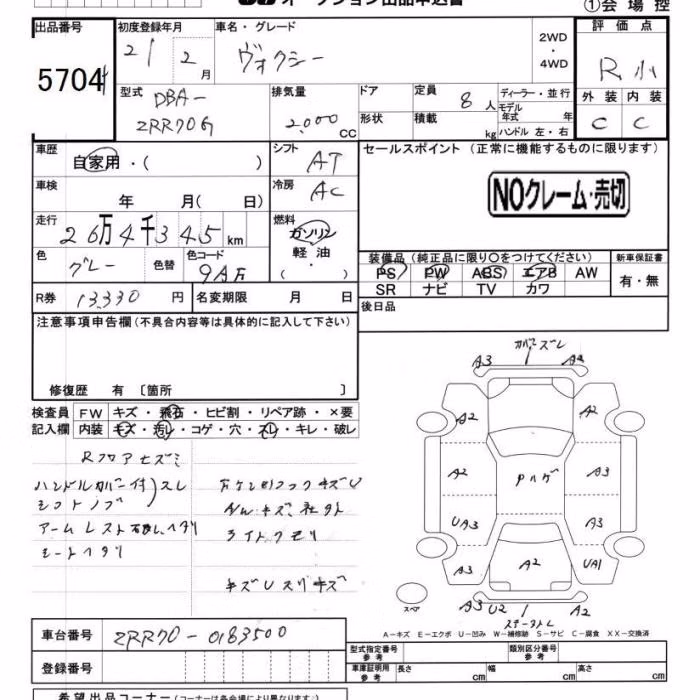 オークション出品申込書
①会場控
出品番号 5704
初度登録年月 21 2月
車名・グレード ヴォクシー
2WD・4WD
評価点 R小
型式 DBA-ZRR70G
排気量 2,000 CC
ドア
形状
定員 8人
積載 kg
ディーラー・並行
モデル年式 年
ハンドル 左・右
外装 内装
C C
車歴 自家用・( )
シフト AT
セールスポイント (正常に機能するものに限ります)
NOクレーム・売切
車検 年 月( 日)
冷房 AC
走行 26万4千345km
燃料 ガソリン
軽油
・( )
色 グレー
色替
色コード 9AF
装備品 (純正品に限り〇をつけてください)
新車保証書
PS PW ABS エアB AW
SR ナビ TV カワ
有・無
R券 13,330円
名変期限 月 日
後日品
注意事項申告欄 (不具合内容等は具体的に記入して下さい)
修復歴 有 [箇所 ]
検査員記入欄
FW キズ・飛石・ヒビ割・リペア跡・×要
内装 キズ・汚レ・コゲ・穴・スレ・キレ・破レ
ハンドルカバー付 スレ
シフトノブ
アームレスト
シートヘタリ
ライトクモリ
カバーズレ
A3 1 A2
A2 A2
A2 Pハゲ A3
UA3 A3
A3 A2 UA1
A3 U2 1 A2
スペア
A-キズ E-エクボ U-凹み W-補修跡 S-サビ C-腐食 XX-交換済
車台番号 ZRR70-0183500
登録番号
型式指定番号 参考
類別区分番号 参考
車庫証明用 参考
長さ cm
幅 cm
高さ cm
希望出品コーナー (コーナーは各会場により異なります)